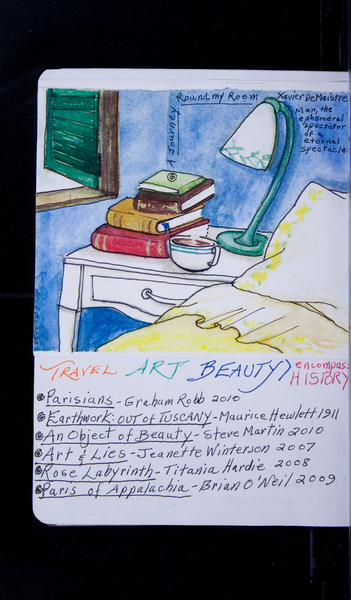 A Journey
Round my Room
Xavier DeMaistre
Man, the
ephemeral
spectator
of a
eternal
spectacle.
TRAVEL ART BEAUTY encompass
HISTORY
Parisians - Graham Robb 2010
Earthwork: OUT of TUSCANY - Maurice Hewlett 1911
An Object of Beauty - Steve Martin 2010
Art & Lies - Jeanette Winterson 2007
Rose Labyrinth - Titania Hardie 2008
Paris of Appalachia - Brian O'Neil 2009